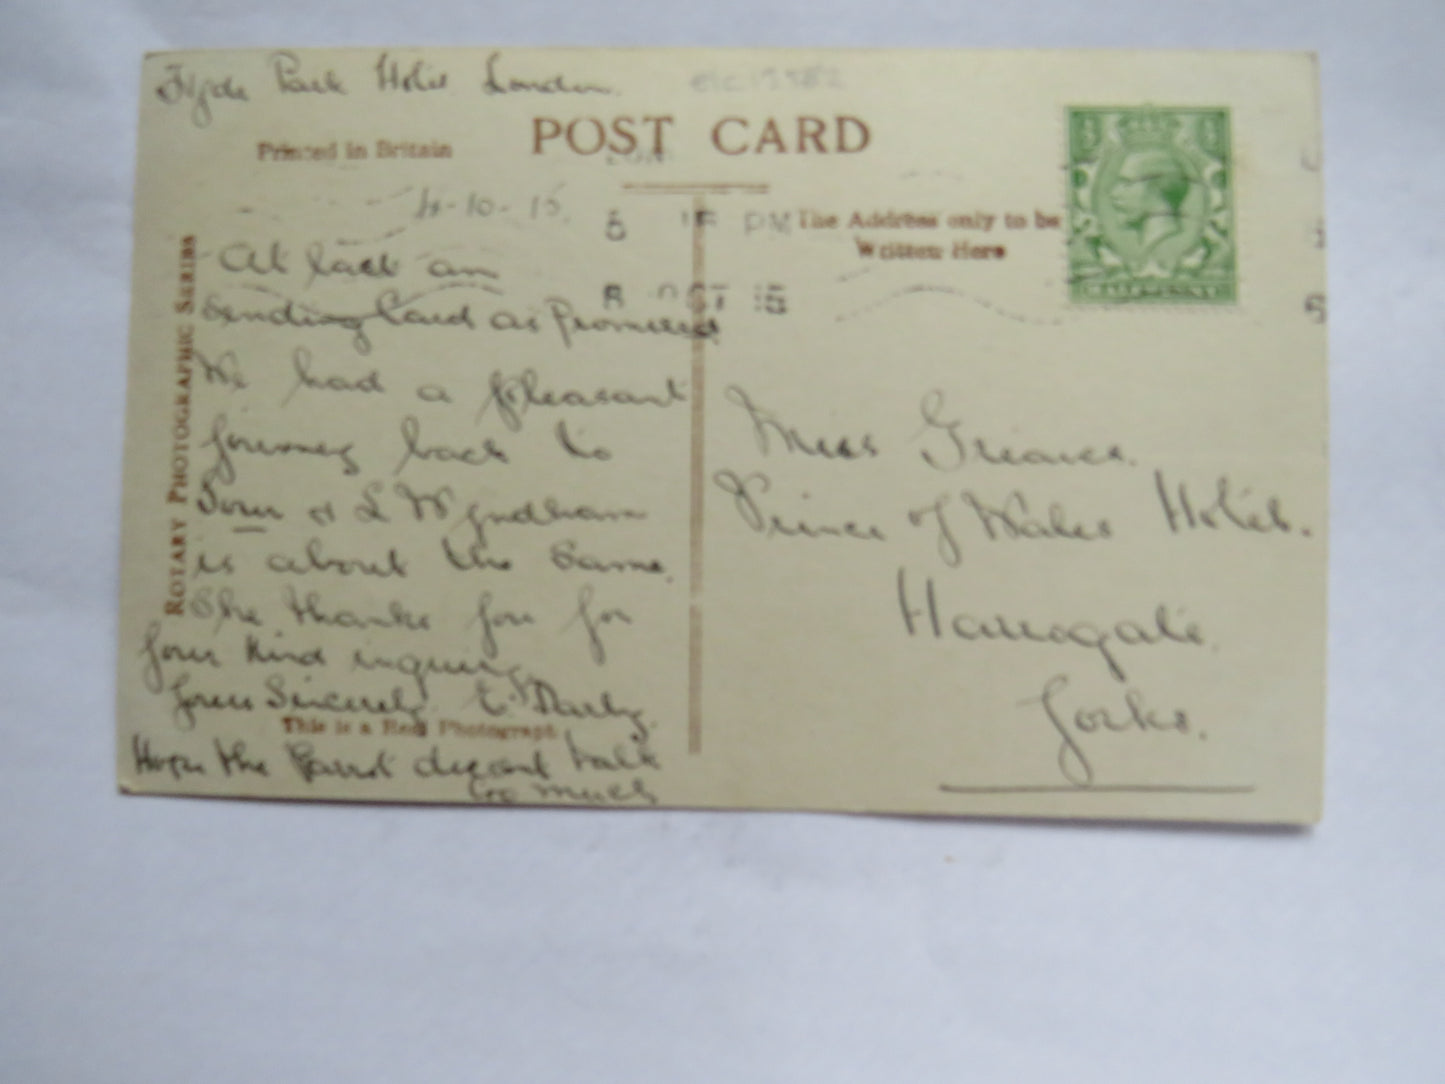 Hyde Park Hotel London.
Printed in Britain
POST CARD
4-10-15.
5 15 PM
The Address only to be
Written Here
OCT 15
ROTARY PHOTOGRAPHIC SERIES
At last am
sending Card as Promised.
We had a pleasant
journey back to
Town & L Wyndham
is about the same.
She thanks you for
your kind inquiry.
yours Sincerely. E. Darby.
This is a Real Photograph
Hope the Parrot doesnt talk
too much
Miss Greaves.
Prince of Wales Hotel.
Harrogate.
Yorks.